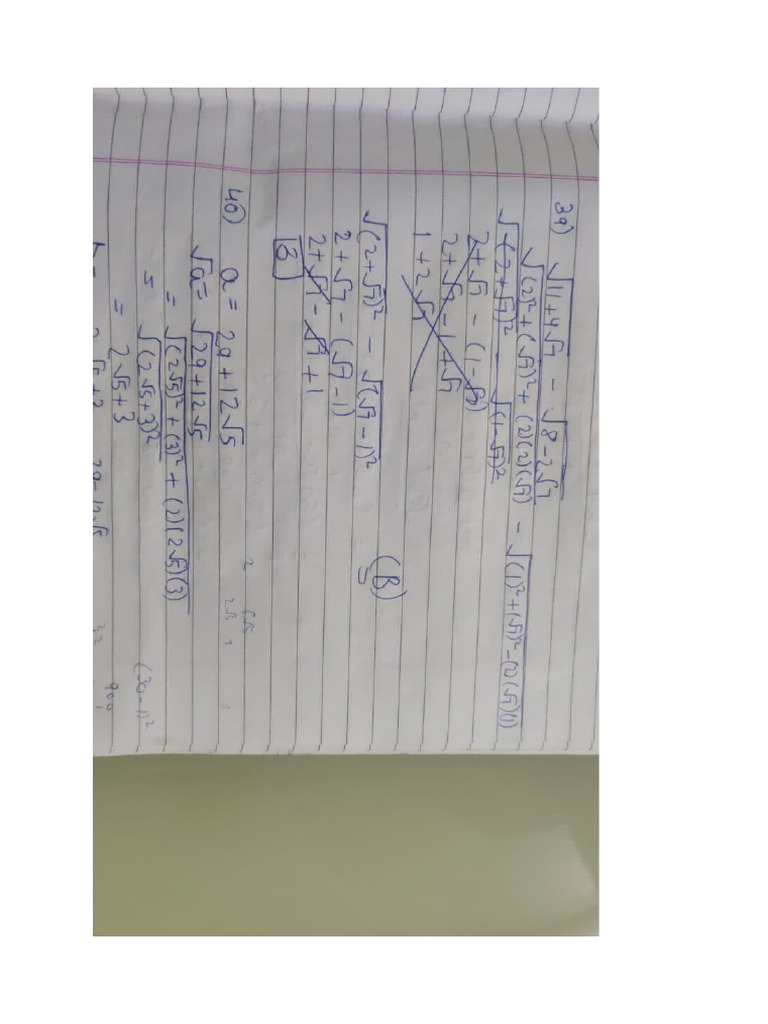 39) √11+4√7 - √8-2√7
√(2)²+(√7)²+(2)(2)(√7) - √(1)²+(√7)²-(2)(√7)(1)
√(2+√7)² - √(1-√7)²
2+√7 - (1-√7)
2+√7 - 1+√7
1+2√7
√(2+√7)² - √(√7-1)² (B)
2+√7 - (√7-1)
2+√7 - √7+1
3
40) a = 29+12√5
√a = √29+12√5
= √(2√5)²+(3)²+(2)(2√5)(3)
= √(2√5+3)²
= 2√5+3
(30-1)²
900